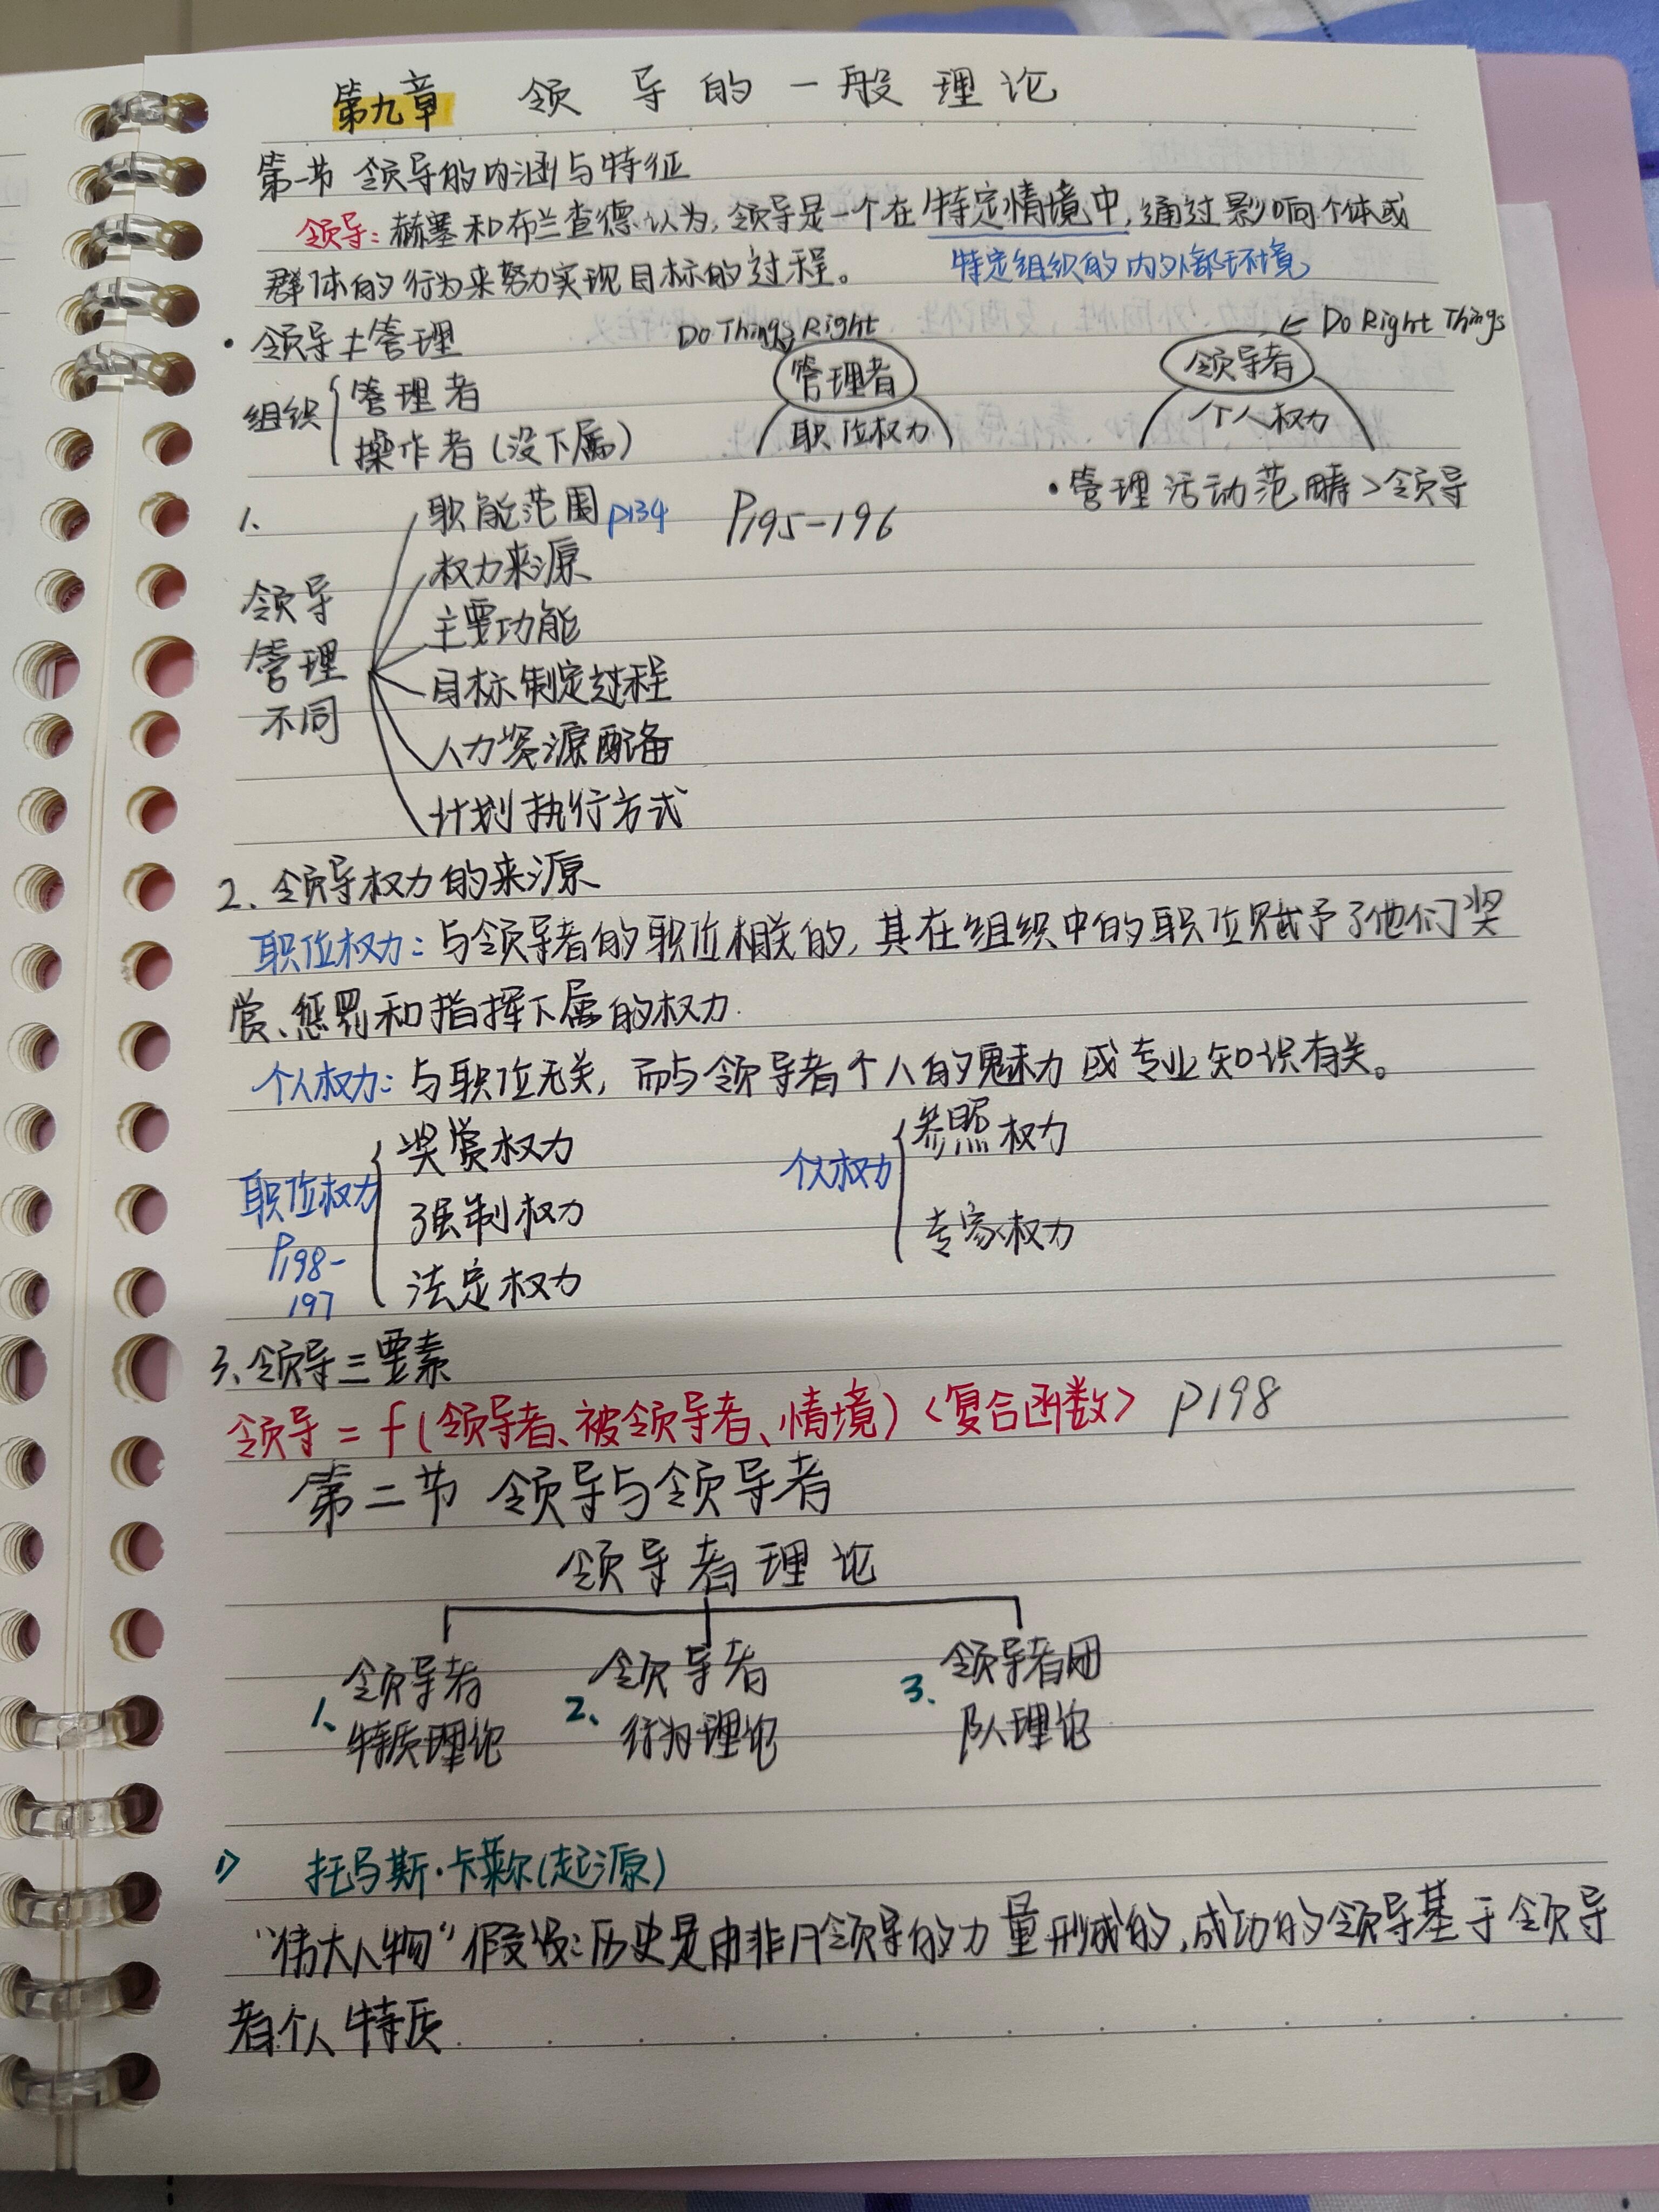 第九章 领导的一般理论
第一节 领导的内涵与特征
领导：赫塞和布兰查德认为，领导是一个在特定情境中，通过影响个体或
群体的行为来努力实现目标的过程。 特定组织的内外部环境
·领导≠管理 Do Things Right ← Do Right Things
管理者 领导者
组织 管理者 职位权力 个人权力
操作者（没下属）
·管理活动范畴>领导
1、 职能范围 P134 P195-196
权力来源
领导 主要功能
管理 目标制定过程
不同 人力资源配备
计划执行方式
2、领导权力的来源
职位权力：与领导者的职位相关的，其在组织中的职位赋予了他们奖
赏、惩罚和指挥下属的权力.
个人权力：与职位无关，而与领导者个人的魅力或专业知识有关。
职位权力 奖赏权力 个人权力 参照权力
P198- 强制权力 专家权力
197 法定权力
3、领导三要素
领导=f(领导者、被领导者、情境)<复合函数> P198
第二节 领导与领导者
领导者理论
1、领导者 2、领导者 3、领导者团
特质理论 行为理论 队理论
1) 托马斯·卡莱尔(起源)
“伟大人物”假设：历史是由非凡领导的力量形成的，成功的领导基于领导
者个人特质.